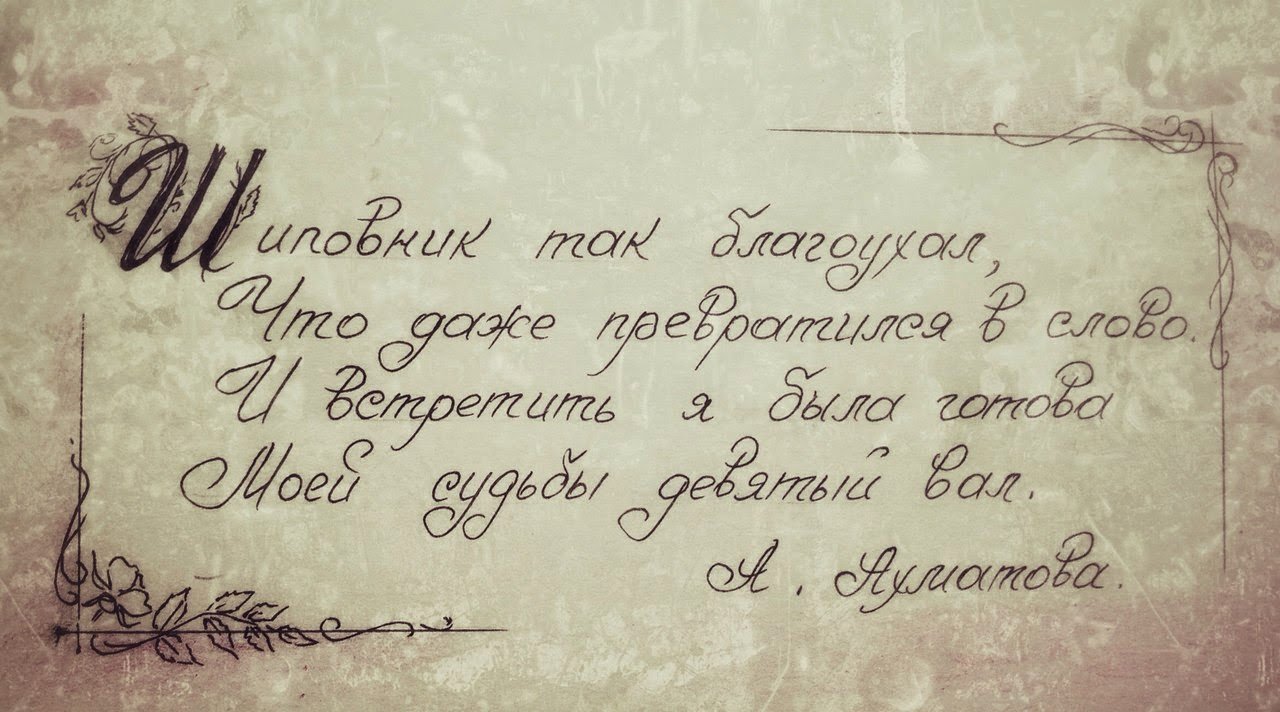 Шиповник так благоухал,
Что даже превратился в слово.
И встретить я была готова
Моей судьбы девятый вал.
А. Ахматова.